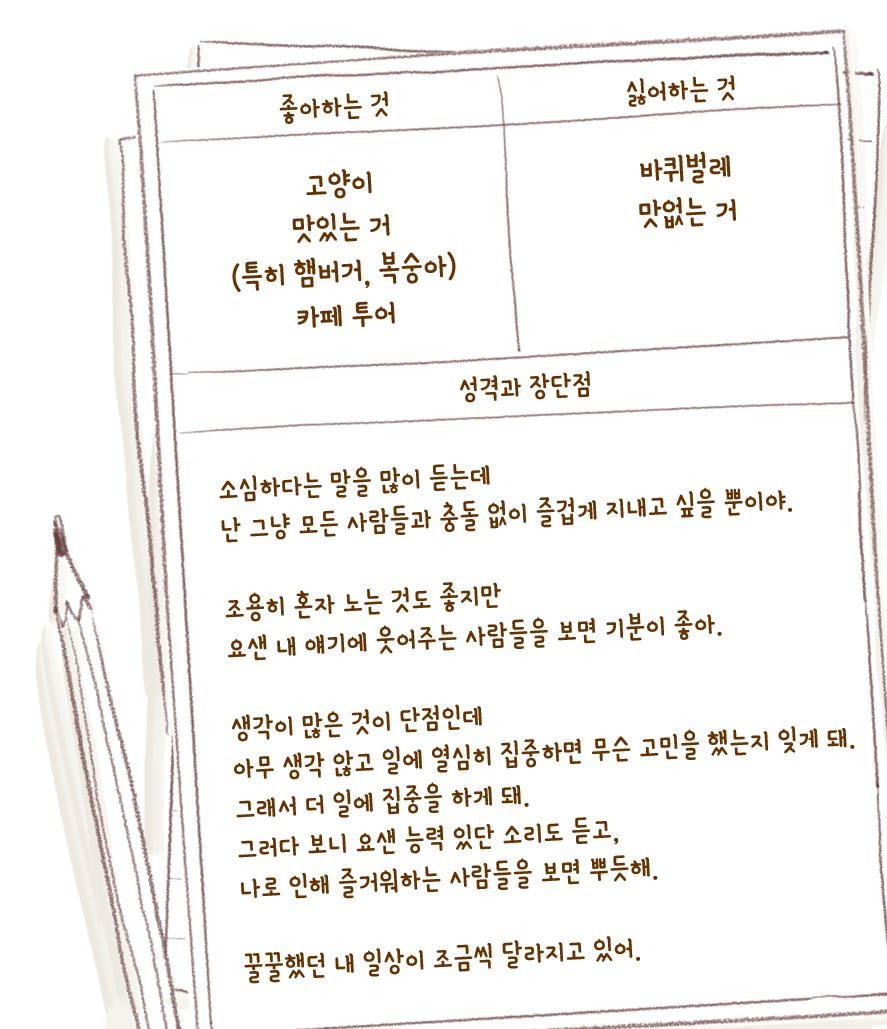 좋아하는 것
싫어하는 것
고양이
맛있는 거
(특히 햄버거, 복숭아)
카페 투어
바퀴벌레
맛없는 거
성격과 장단점
소심하다는 말을 많이 듣는데
난 그냥 모든 사람들과 충돌 없이 즐겁게 지내고 싶을 뿐이야.
조용히 혼자 노는 것도 좋지만
요샌 내 얘기에 웃어주는 사람들을 보면 기분이 좋아.
생각이 많은 것이 단점인데
아무 생각 않고 일에 열심히 집중하면 무슨 고민을 했는지 잊게 돼.
그래서 더 일에 집중을 하게 돼.
그러다 보니 요샌 능력 있단 소리도 듣고,
나로 인해 즐거워하는 사람들을 보면 뿌듯해.
꿀꿀했던 내 일상이 조금씩 달라지고 있어.